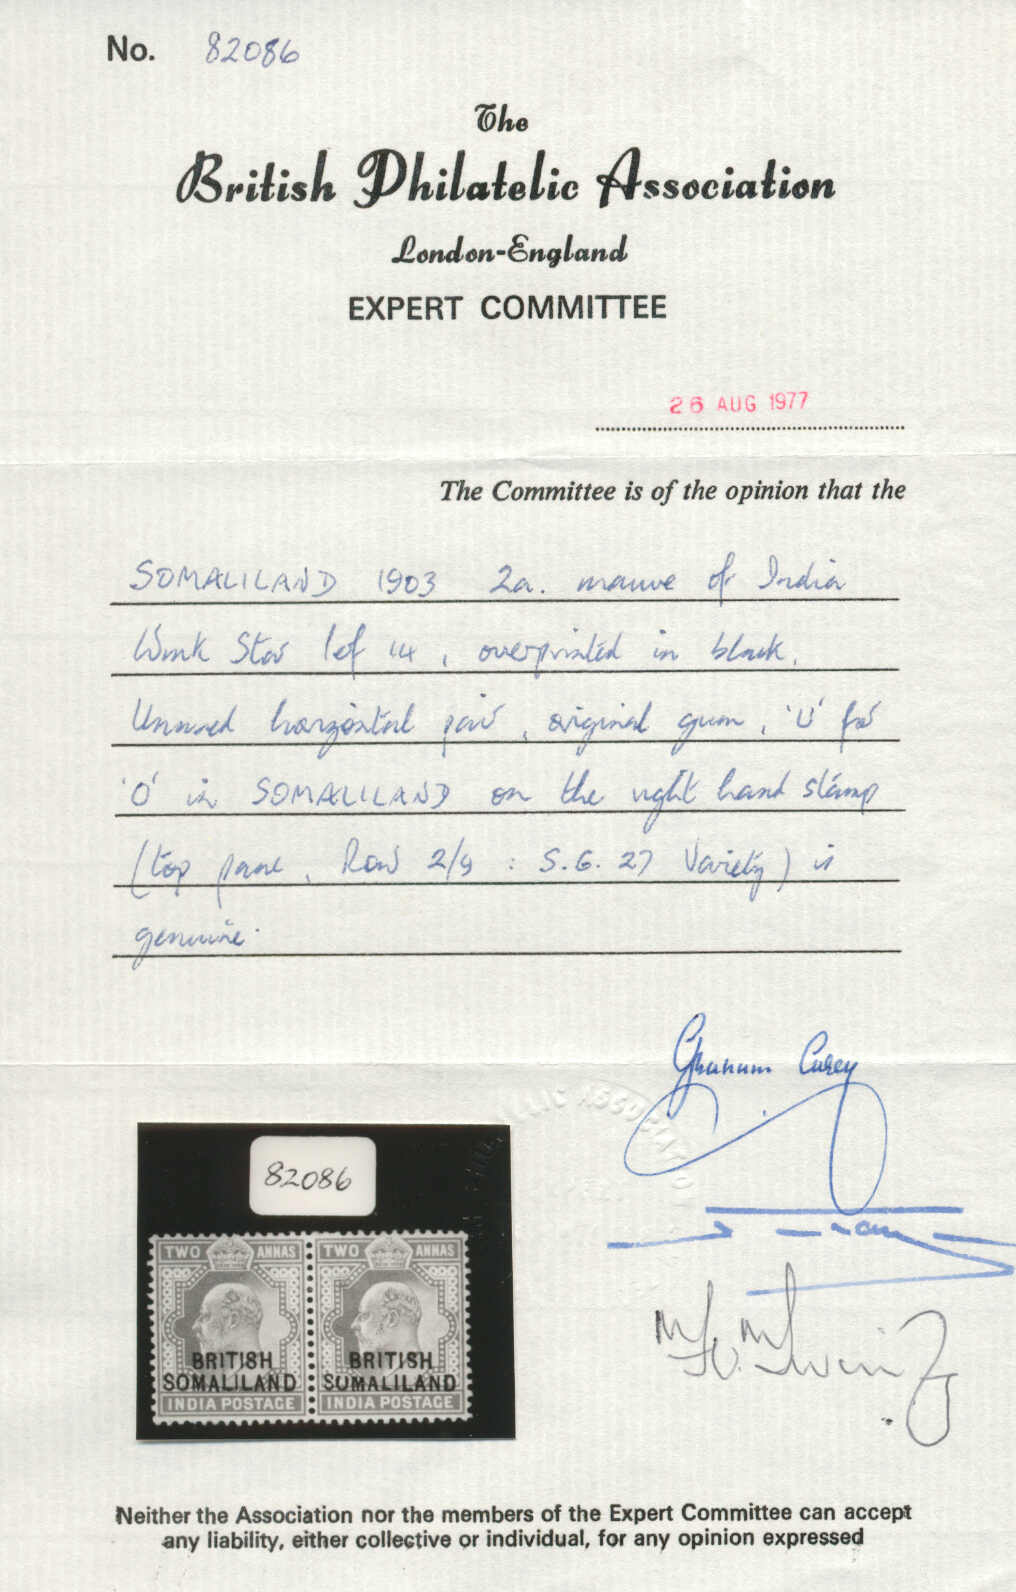 No. 82086
The
British Philatelic Association
London-England
EXPERT COMMITTEE
26 AUG 1977
The Committee is of the opinion that the
SOMALILAND 1903 2a. mauve of India
Wmk Star Perf 14, overprinted in black.
Unused horizontal pair, original gum, 'U' for
'O' in SOMALILAND on the right hand stamp
(top pane, Row 2/9 : S.G. 27 Variety) is
genuine.
Graham Carey
ASSOCIATIO
82086
TWO ANNAS TWO ANNAS
BRITISH BRITISH
SOMALILAND SUMALILAND
INDIA POSTAGE INDIA POSTAGE
Neither the Association nor the members of the Expert Committee can accept
any liability, either collective or individual, for any opinion expressed